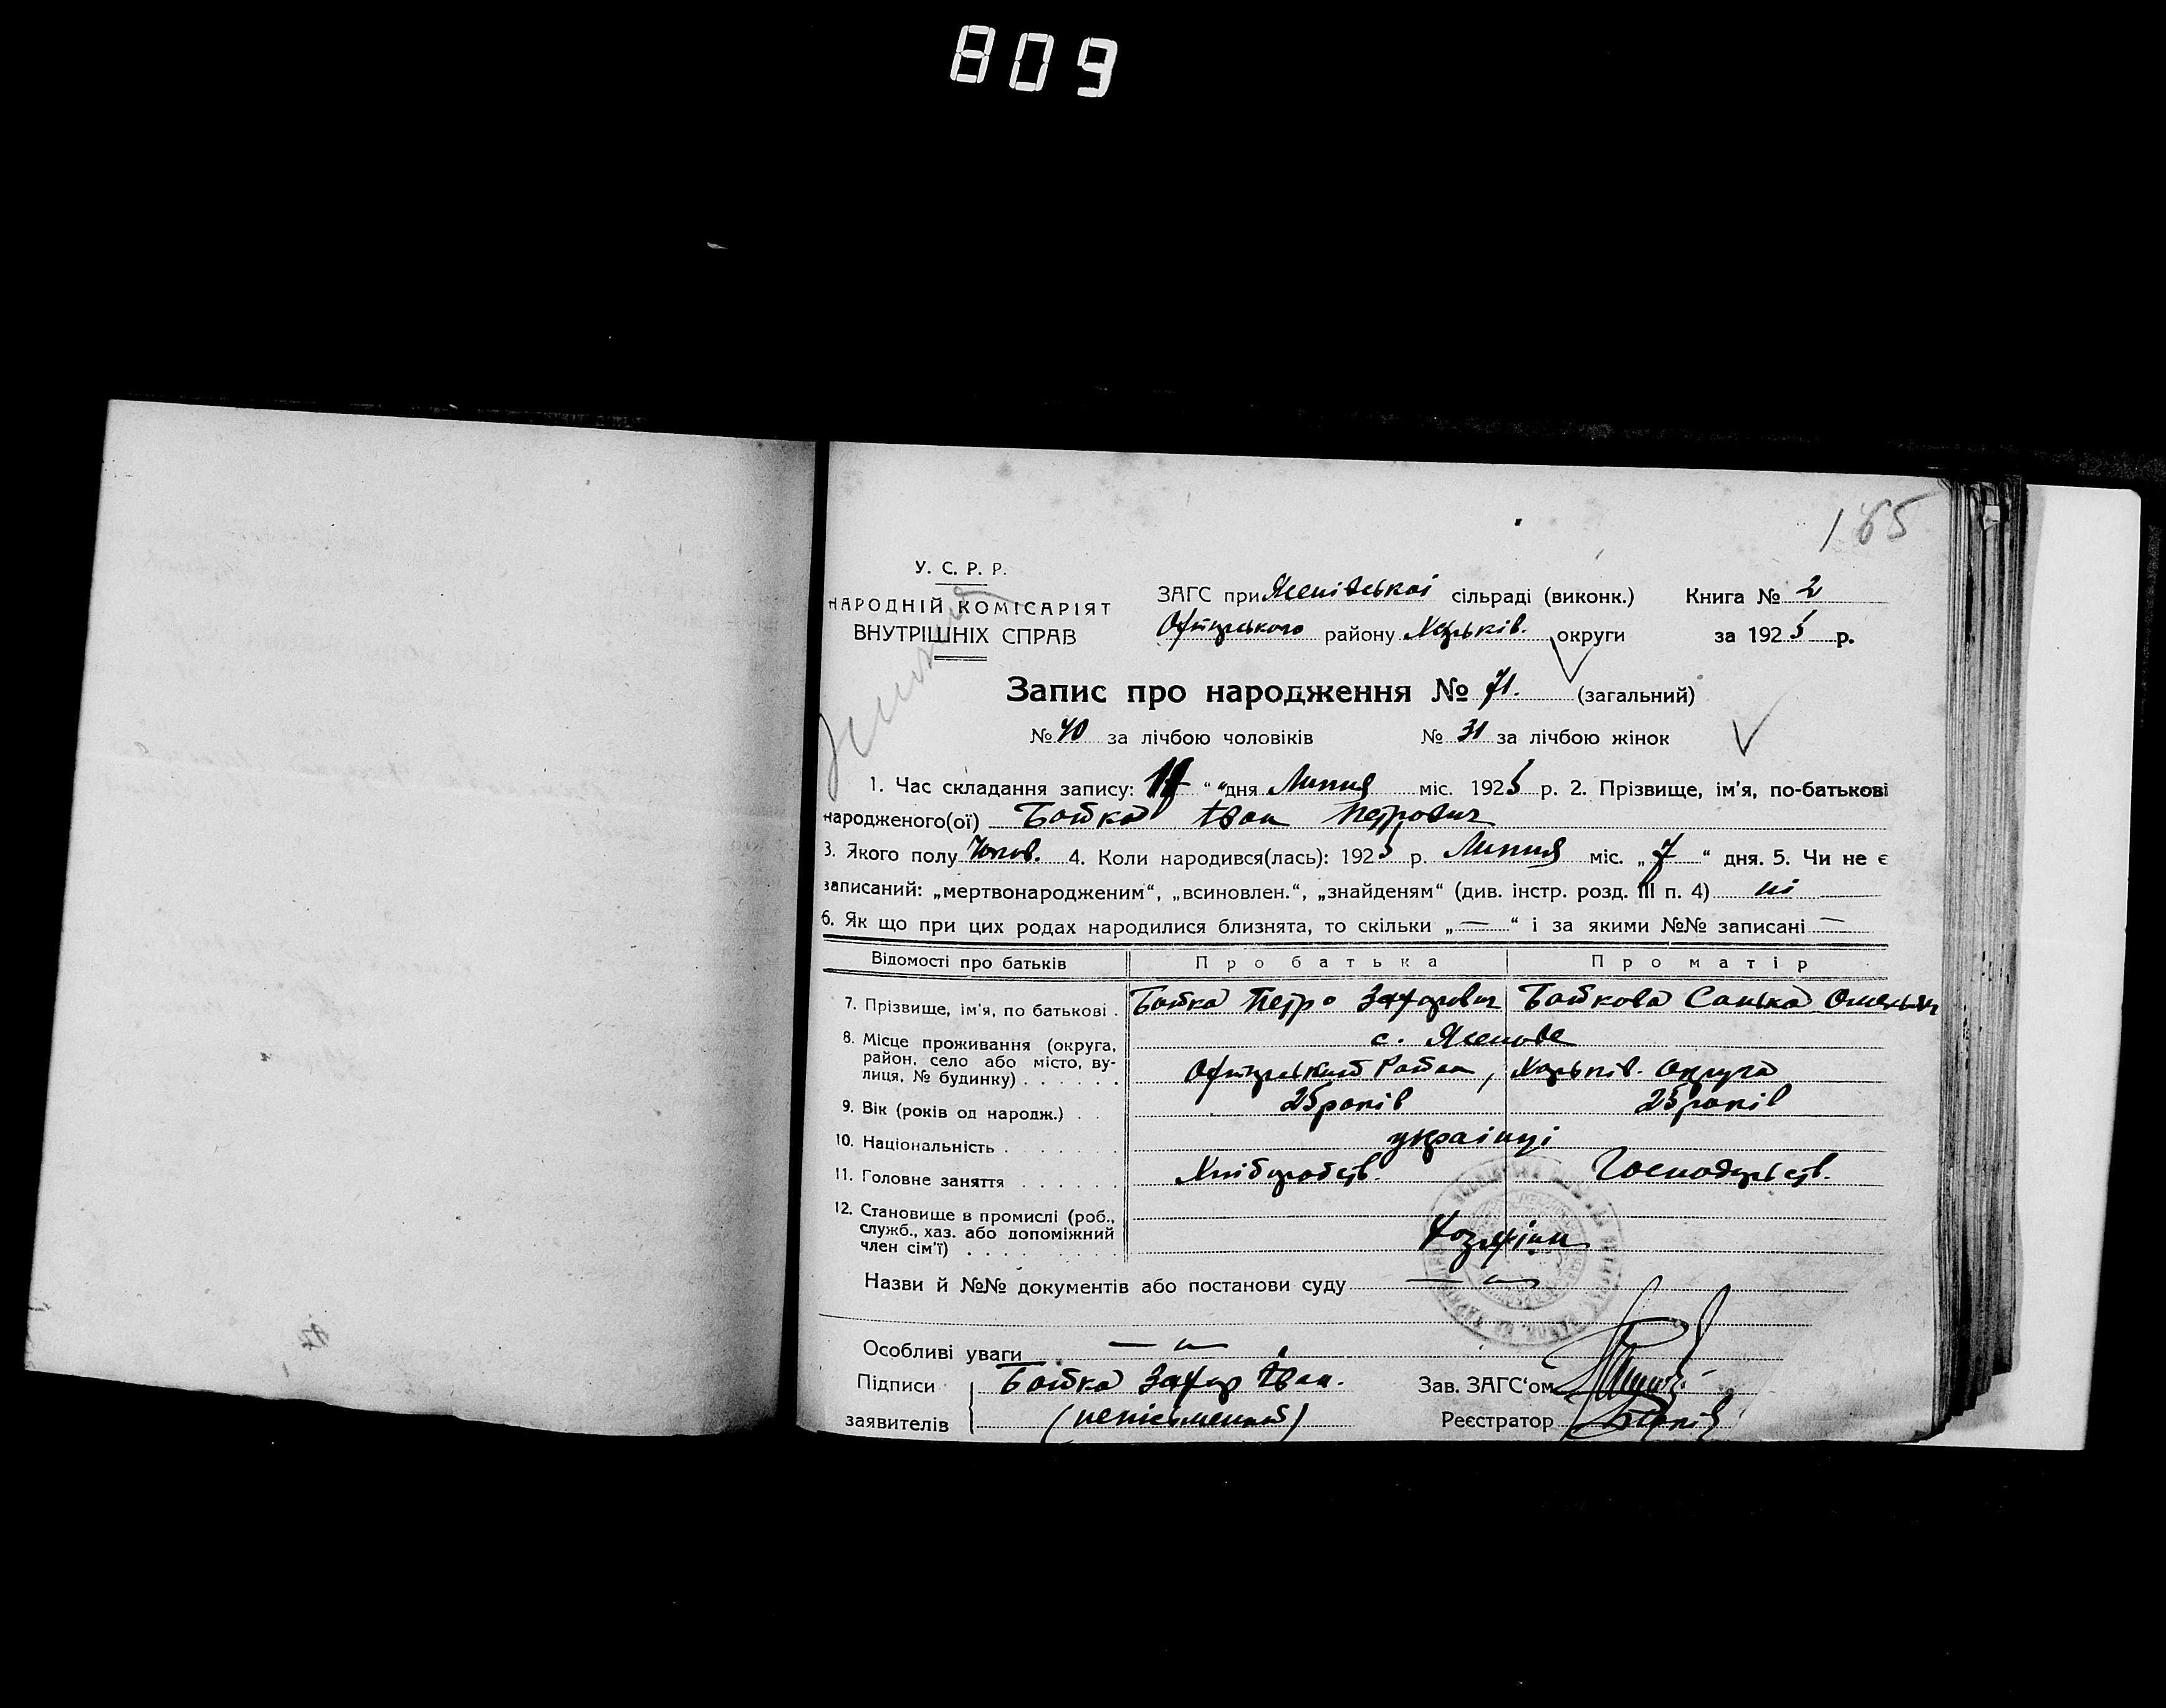 809
185
У. С. Р. Р.
НАРОДНІЙ КОМІСАРІЯТ
ВНУТРІШНІХ СПРАВ
ЗАГС при Ясенівської сільраді (виконк.) Книга № 2
Охтирського району Харьків. округи за 1925 р.
Запис про народження № 71. (загальний)
№ 40 за лічбою чоловіків № 31 за лічбою жінок
1. Час складання запису: 17 " "дня Липня міс. 1925 р. 2. Прізвище, ім'я, по-батькові
народженого(ої) Бойко Іван Петрович
3. Якого полу Чолов. 4. Коли народився(лась): 1925 р. Липня міс. „7" дня. 5. Чи не є
записаний: „мертвонародженим", „всиновлен.", „знайденям" (див. інстр. розд. III п. 4) ні
6. Як що при цих родах народилися близнята, то скільки „—" і за якими №№ записані —
Відомості про батьків Про батька Про матір
7. Прізвище, ім'я, по батькові . Бойко Петро Захарович Бойкова Санька Омельян
8. Місце проживання (округа, район, село або місто, вулиця, № будинку) . . . . . . с. Ясенове
Охтирський Район, Харьків. округа
9. Вік (років од народж.) . . 25 років 25 років
10. Національність . . . . . . українці
11. Головне заняття . . . . . . Хліборобств. Господарств.
12. Становище в промислі (роб., служб., хаз. або допоміжний член сім'ї) . . . . Хозяїни
Назви й №№ документів або постанови суду — „ —
Особливі уваги — „ —
Підписи Бойко Захар Іван. Зав. ЗАГС'ом
заявителів (неписьменний) Реєстратор